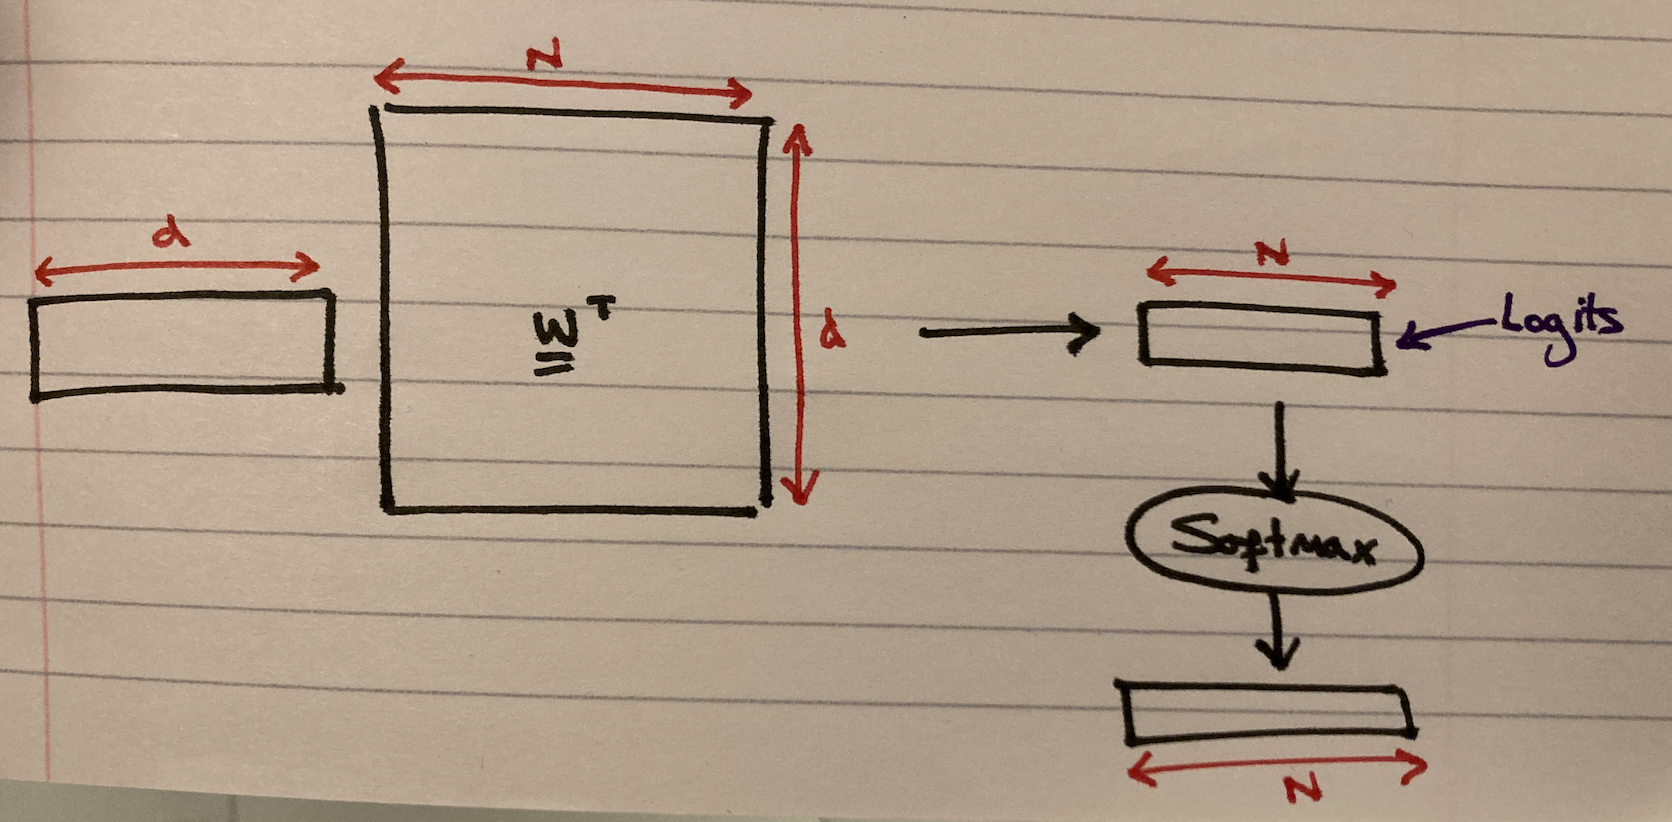 N
d
W^T
d
N
Logits
Softmax
N